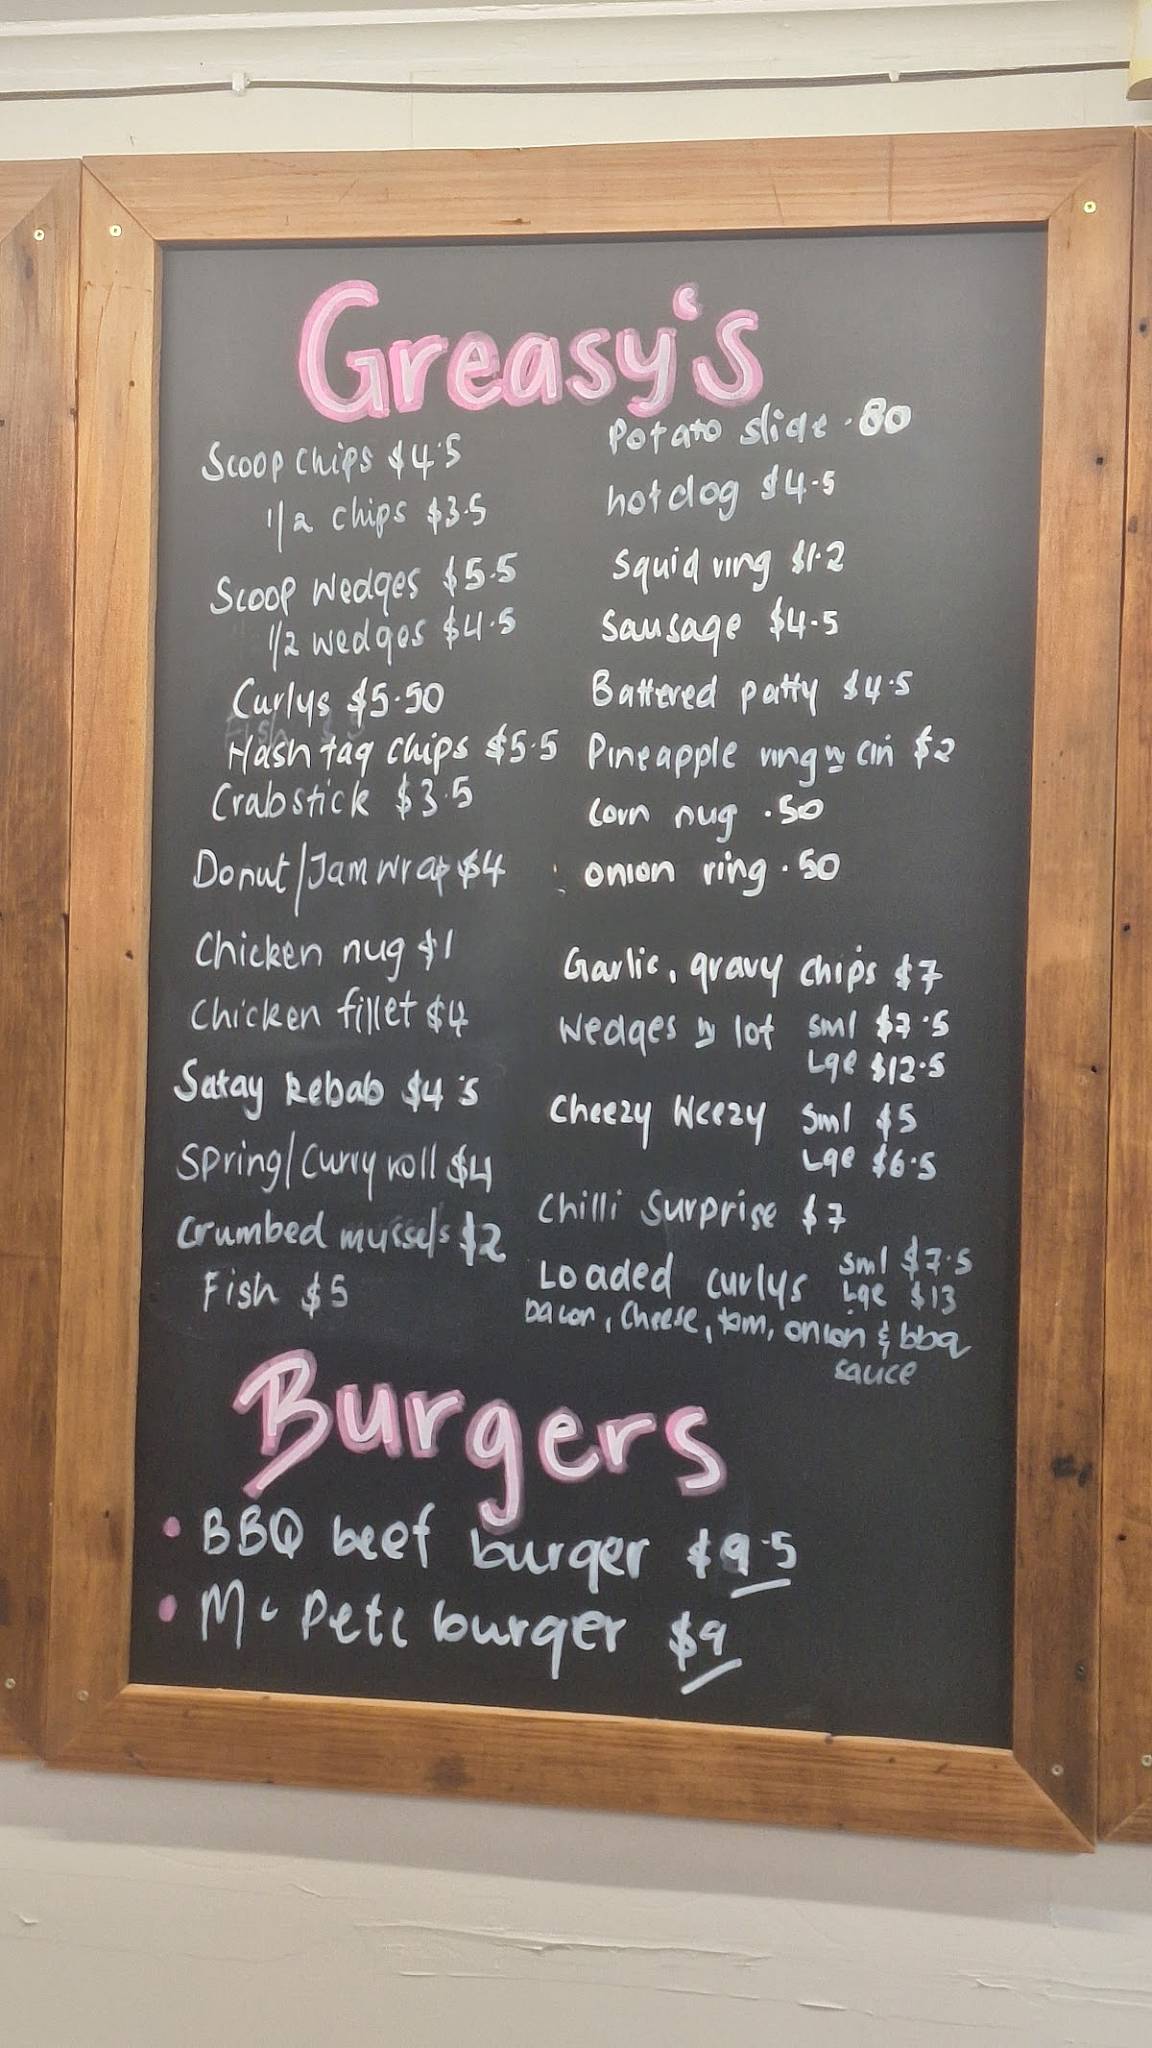 Greasy's
Scoop chips $4.5
1/2 chips $3.5
Scoop wedges $5.5
1/2 wedges $4.5
Curlys $5.50
Hash tag chips $5.5
Crabstick $3.5
Donut/Jam wrap $4
Chicken nug $1
Chicken fillet $4
Satay kebab $4.5
Spring/Curry roll $4
Crumbed mussels $2
Fish $5
Potato slide .80
hotdog $4.5
Squid ring $1.2
Sausage $4.5
Battered patty $4.5
Pineapple ring n cin $2
Corn nug .50
onion ring .50
Garlic, gravy chips $7
Wedges n lot sml $7.5
Lge $12.5
Cheezy Weezy sml $5
Lge $6.5
Chilli Surprise $7
Loaded curlys sml $7.5
Lge $13
bacon, Cheese, tom, onion & bbq
sauce
Burgers
• BBQ beef burger $9.5
• Mc Pete burger $9